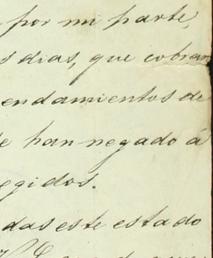 por mi parte,
s dias, que cobran
endamientos de
e han negado á
egidos.
das este estado